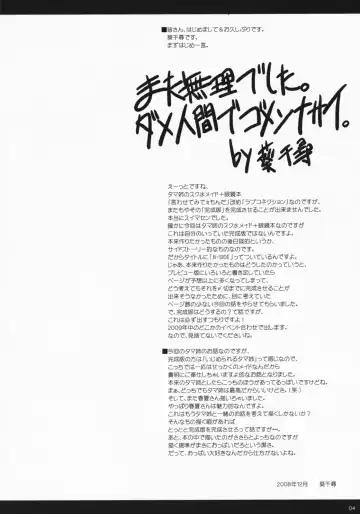 ■皆さん、はじめまして&お久しぶりです。
葵千尋です。
まずはじめ一言。
また無理でした。
ダメ人間でゴメンナサイ。
by 葵千尋
えーっとですね、
タマ姉のスク水メイド+眼鏡本
またもやその「完成版」を完成させることが出来ませんでした。
本当にスイマセン。
確かに今回はタマ姉のスク水メイド+眼鏡本なのですが
これは自分のいっていた完成版ではないんですよ。
本来作りたかったものの後日談的というか、
サイドストーリー的なものなのです。
だからタイトルに「X-SIDE」ってついているんですよ。
じゃあ、本来作りたかったものはどうしたのかっていうと
プレビュー版にいろいろと書き足していたら
ページが予想以上に多くなってしまって、
どう考えても〆切までに完成させることが
出来そうなかったために、回に考えていた
ページ数の少ない今回の話をやらせてもらいました。
で、完成版はどうするの?て話ですが、
これは必ず出すつもりですよ!
2009年中のどこかのイベント合わせで出します。
なので、見捨てないでくださいね。
■今回のタマ姉のお話なのですが、
完成版の方は「いじめられるタマ姉」って感じなので、
こっちでは一応はせっかくのメイドなんだから
貴明にご奉仕しちゃいますよ的なお話となりました。
本来のタマ姉としたらこっちのほうがあってるっぽいですけどね。
まぁ、どっちでもタマ姉は最高だからいいけどさ。(笑)
そして、また春夏さん描いちゃいました。
やっぱり春夏さんは魅力的なんですよ。
これはもうタマ姉と一緒の的話を考えて描くしかないか?
そんなもの描く暇があれば
とっとと完成版を完成させろって話ですがー。
あと、本の中で描いたのがささらとよっちなのですが
描く標準がまさにおっぱいだろうという潔さ。
だって、おっぱい大好きなんだから仕方がないよね。
2008年12月 葵千尋
04